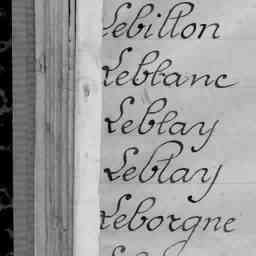 Lebillon
Leblanc
Leblay
Leblay
Leborgne